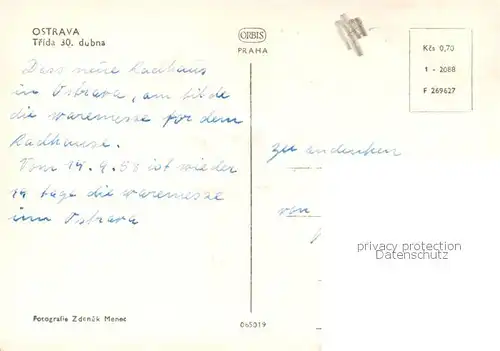 OSTRAVA
Třída 30. dubna
ORBIS
PRAHA
Kčs 0,70
1 - 2088
F 269627
Dass neue Radhaus
in Ostrava, am bilde
die waremesse for dem
Radhause.
Vom 14.9.58 ist wieder
14 tage die waremesse
im Ostrava
zu andenken
von
privacy protection
Datenschutz
Fotografie Zdeněk Menec
065019